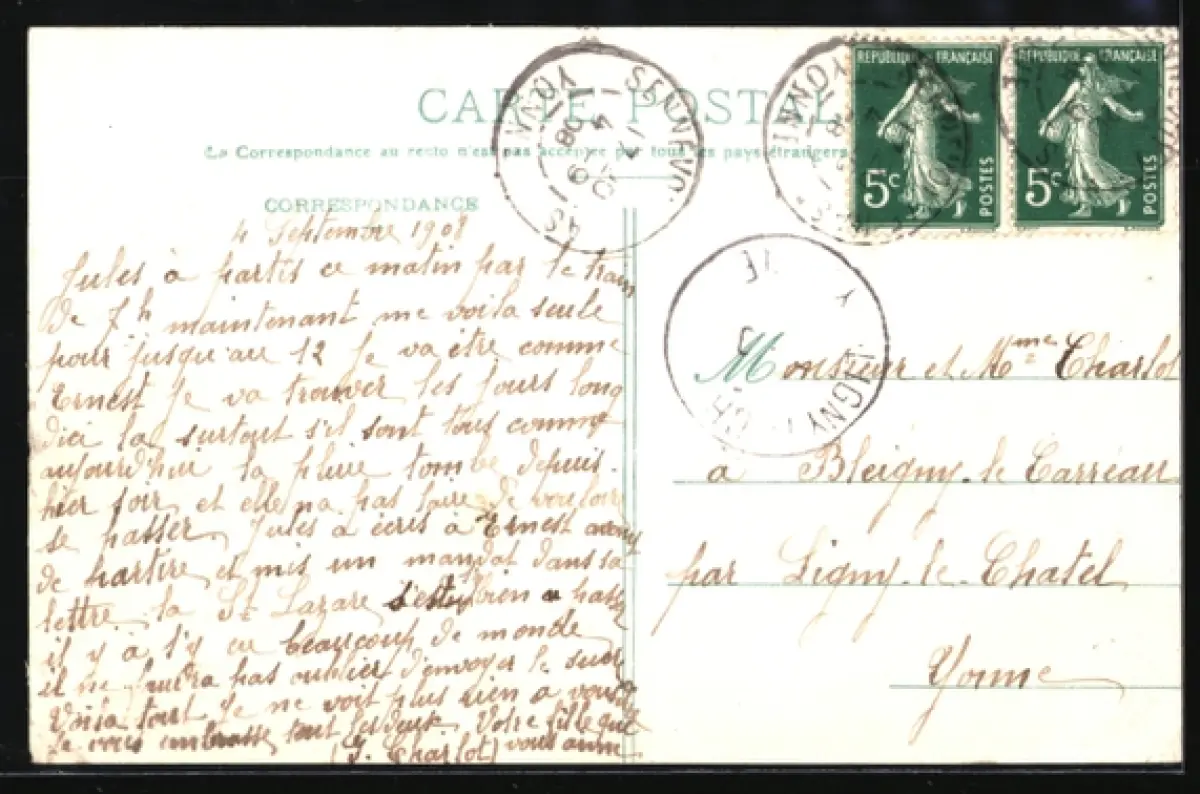 CARTE POSTALE
La Correspondance au recto n'est pas acceptée par tous les pays étrangers
CORRESPONDANCE
4 Septembre 1908
Jules à partis ce matin par le train
de 7h maintenant me voila seule
pour jusqu'au 12 je va être comme
Ernest je va trouver les jours long
dici la surtout s'il sont tous comme
aujourd'hui la pluie tombe depuis
hier soir et elle na pas laire de vouloir
se passer, Jules a écris à Ernest avent
de partire et mis un mandat dans sa
lettre. la St Lazare s'est bien passé
il y à s'y eu beaucoup de monde
il ne faudra pas oublier d'envoyer le
Voila tout je ne voit plus rien a vous
je vous embrasse tout les deux. Votre fille qui
(J. Charlot) vous aime
REPUBLIQUE FRANÇAISE
5c POSTES
REPUBLIQUE FRANÇAISE
5c POSTES
SENNEVOY
4 - 9
08
YONNE
Monsieur et Mme Charlot
à Bleigny-le-Carréau
par Ligny-le-Chatel
Yonne